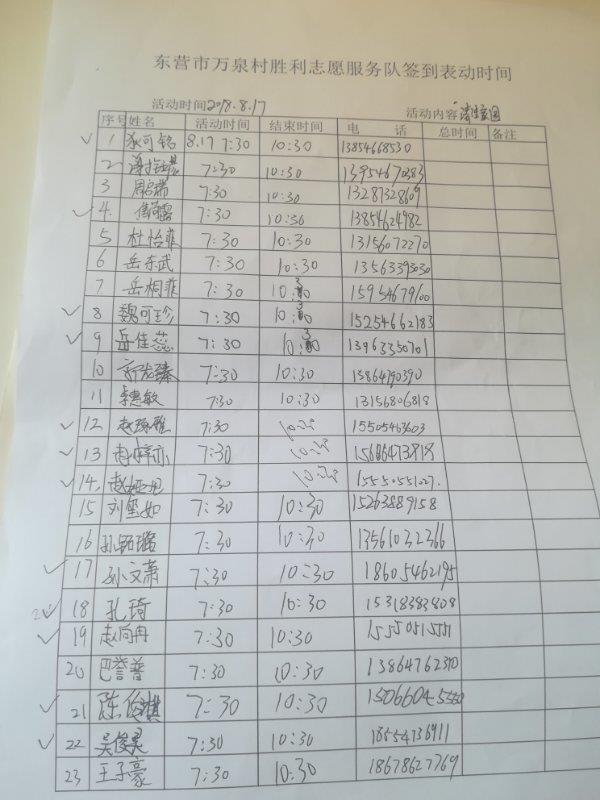 东营市万泉村胜利志愿服务队签到表动时间
活动时间2018.8.17 活动内容清洁家园
序号 姓名 活动时间 结束时间 电话 总时间 备注
1 狄可铭 8.17 7:30 10:30 13854668530
2 7:30 10:30 13954670383
3 周启瑞 7:30 10:30 13287328609
4. 7:30 10:30 13854624982
5 杜怡菲 7:30 10:30 13156072270
6 岳东武 7:30 10:30 13563393030
7 岳桐菲 7:30 10:30 15954679600
8 魏可珍 7:30 10:30 15254662183
9 岳佳蕊 7:30 10:30 13963350701
10 7:30 10:30 13864790390
11 綦惠敏 7:30 10:30 13156806818
12 7:30 10:30 15505463603
13 赵梓亦 7:30 10:30
14. 7:30 10:30
15 刘玺如 7:30 10:30 15263889158
16 孙钰璐 7:30 10:30 13561032366
17 孙文萧 7:30 10:30 18605462195
18 孔琦 7:30 10:30 15318383808
19 赵向冉 7:30 10:30
20 巴誉普 7:30 10:30 13864762310
21 陈俊祺 7:30 10:30
22 吴俊昊 7:30 10:30 18554736911
23 王子豪 7:30 10:30 18678627769